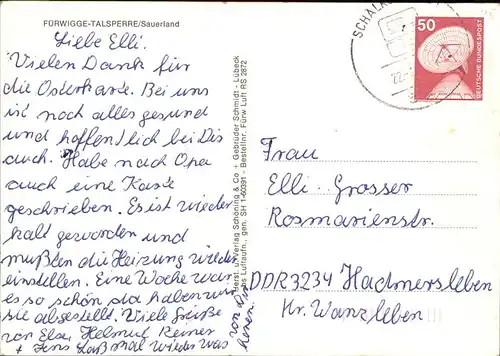 FÜRWIGGE-TALSPERRE/Sauerland
Liebe Elli.
Vielen Dank für
die Osterkarte. Bei uns
ist noch alles gesund
und hoffentlich bei Dir
auch. Habe nach Opa
auch eine Karte
geschrieben. Es ist wieder
kalt geworden und
mußten die Heizung wieder
einstellen. Eine Woche war
es so schön da haben wir
sie abgestellt. Viele Grüße
von Else, Helmut Reiner
+ Jens Laß mal wieder was
von Dir
hören.
Schöning & Co + Gebrüder Schmidt - Lübeck
Luftaufn., gen. SH 1-60391 - Bestellnr. Fürw Luft RS 2872
SCHALK
22.
50
DEUTSCHE BUNDESPOST
Frau
Elli Grosser
Rosmarienstr.
DDR 3234 Hadmersleben
Kr. Wanzleben